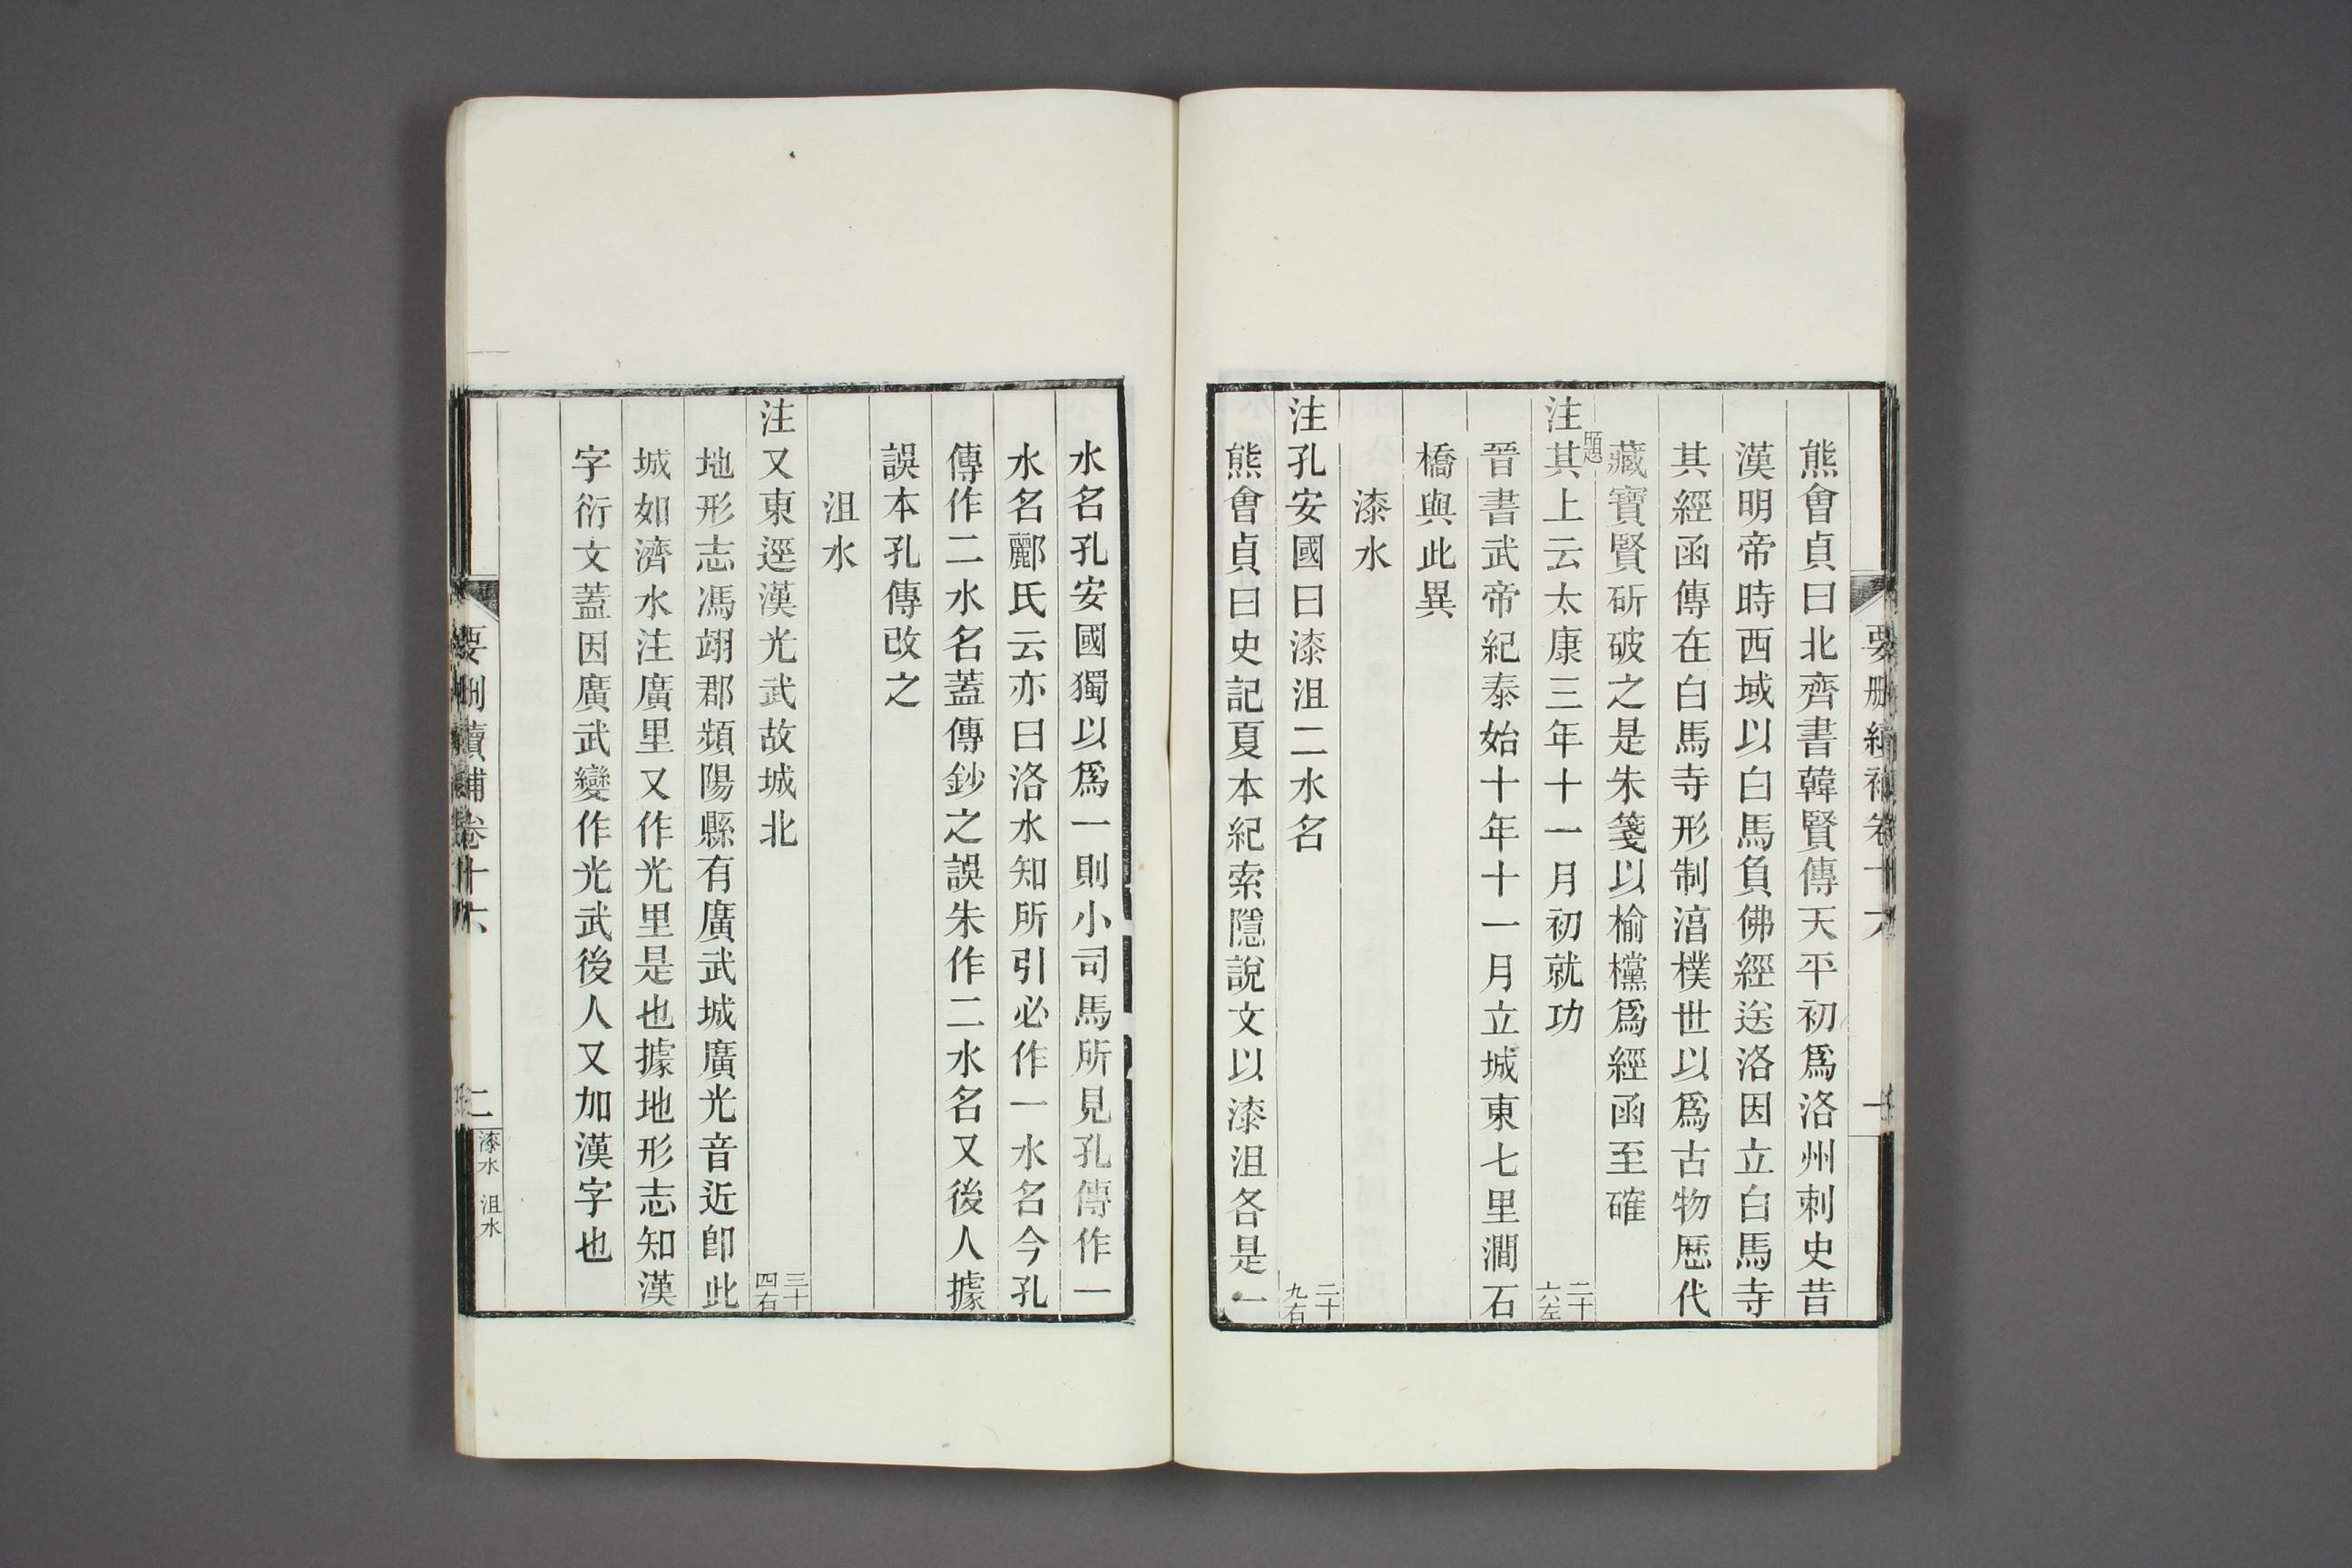 要刪續補卷十六
一
熊會貞曰北齊書韓賢傳天平初爲洛州刺史昔
漢明帝時西域以白馬負佛經送洛因立白馬寺
其經函傳在白馬寺形制湻樸世以爲古物歷代
藏寶賢斫破之是朱箋以榆欓爲經函至確
注題其上云太康三年十一月初就功二十六左
晉書武帝紀泰始十年十一月立城東七里澗石
橋與此異
漆水
注孔安國曰漆沮二水名二十九右
熊會貞曰史記夏本紀索隱說文以漆沮各是一
水名孔安國獨以爲一則小司馬所見孔傳作一
水名酈氏云亦曰洛水知所引必作一水名今孔
傳作二水名蓋傳鈔之誤朱作二水名又後人據
誤本孔傳改之
沮水
注又東逕漢光武故城北三十四右
地形志馮翊郡頻陽縣有廣武城廣光音近卽此
城如濟水注廣里又作光里是也據地形志知漢
字衍文蓋因廣武變作光武後人又加漢字也
要刪續補卷十六
二
漆水 沮水